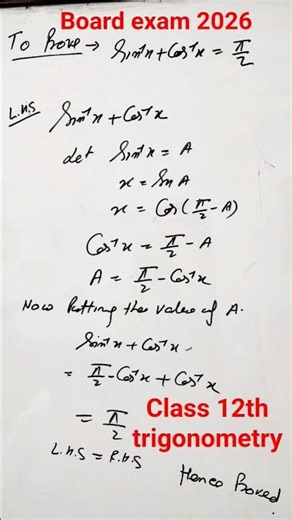 Board exam 2026
To Prove → Sin⁻¹x + Cos⁻¹x = π/2
L.H.S Sin⁻¹x + Cos⁻¹x
Let Sin⁻¹x = A
x = Sin A
x = Cos(π/2 - A)
Cos⁻¹x = π/2 - A
A = π/2 - Cos⁻¹x
Now Putting the value of A.
Sin⁻¹x + Cos⁻¹x
= π/2 - Cos⁻¹x + Cos⁻¹x
= π/2
Class 12th
trigonometry
L.H.S = R.H.S
Hence Proved